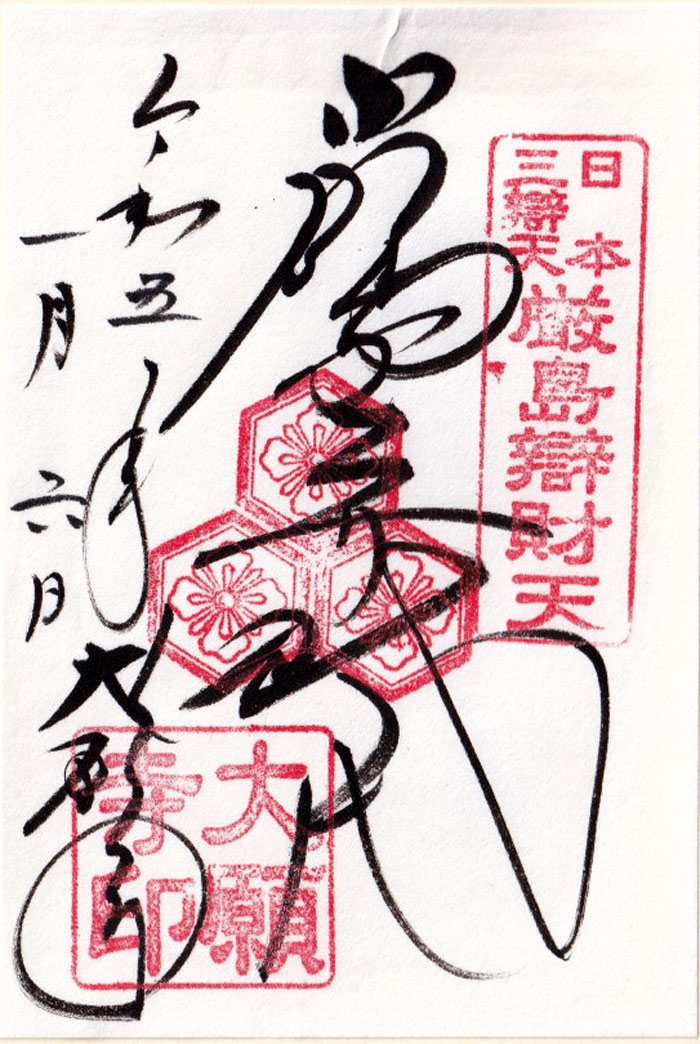 日本
三辯天
厳島辯財天
令和五年
一月六日
大願寺
大願
寺印